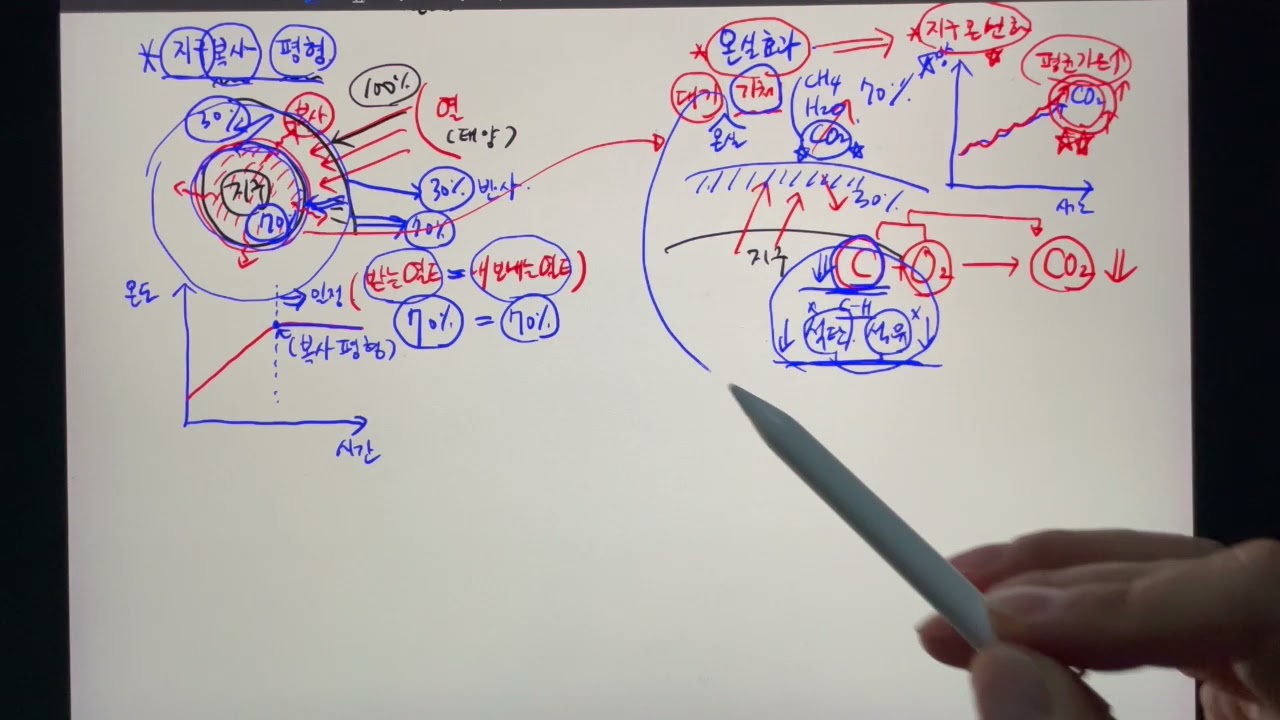 * 지구 복사 평형
100%
30%
복사
열
(태양)
지구
70
30% 반사
70%
온도
⇒ 일정 ( 받는 열E = 내보내는 열E )
70% = 70%
(복사 평형)
시간
* 온실효과
* 지구 온난화
대기 기체
온실
CH4
H2O
CO2
70%
30%
지구
평균기온↑
CO2↑
양
시간
C + O2 → CO2 ↓↓
C-H
석탄 석유